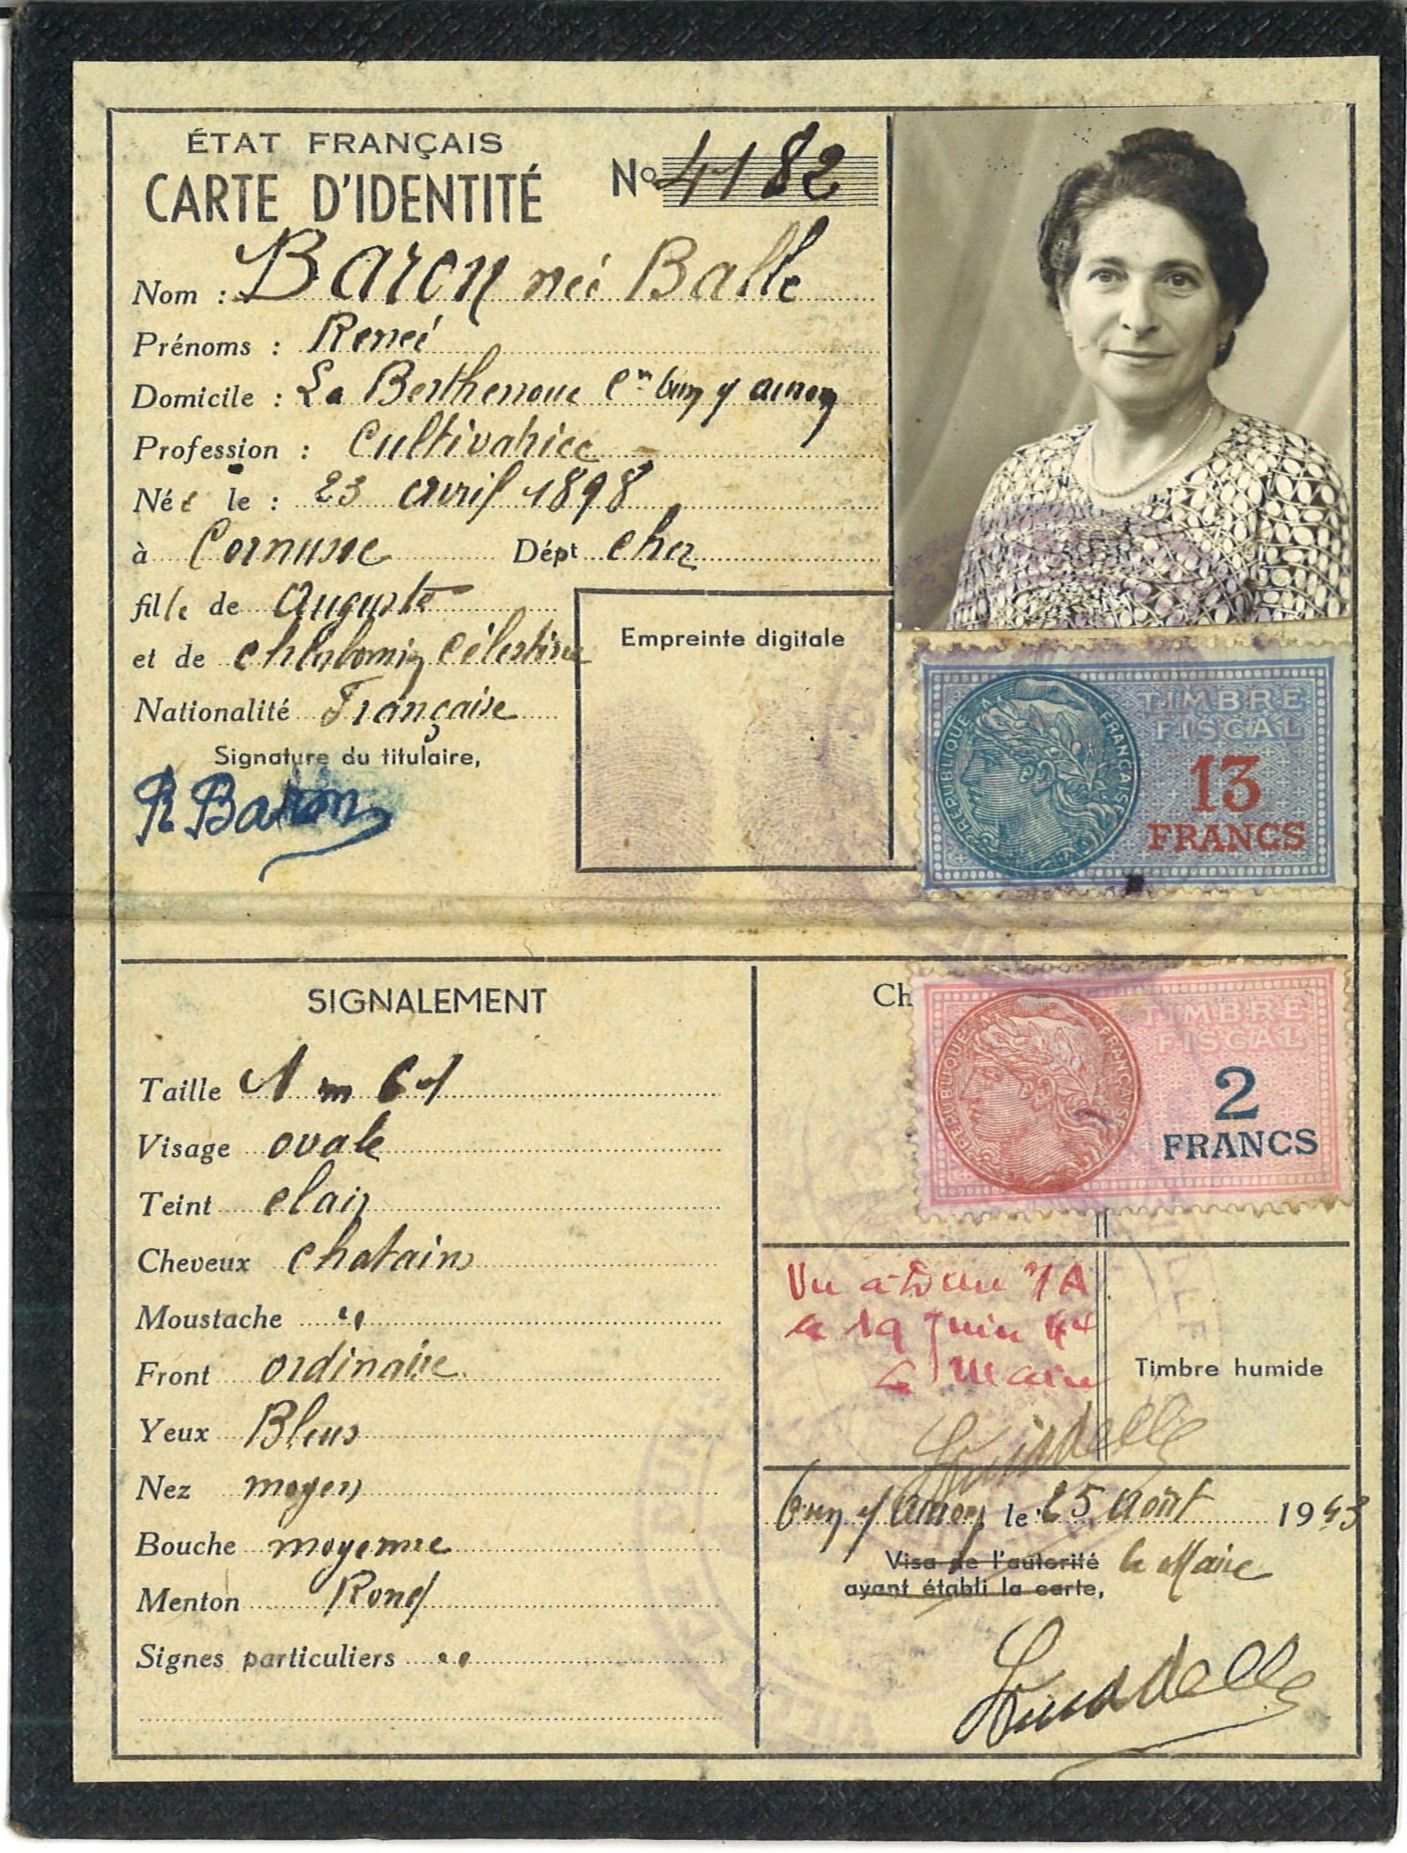 ÉTAT FRANÇAIS
CARTE D'IDENTITÉ
Nº 4182
Nom : Baron née Balle
Prénoms : Renée
Domicile : La Berthenoux
Profession : Cultivatrice
Née le : 23 avril 1898
à Cornusse Dépt Cher
fille de Auguste
et de Célestine
Nationalité Française
Signature du titulaire,
R Baron
Empreinte digitale
RÉPUBLIQUE FRANÇAISE
TIMBRE
FISCAL
13
FRANCS
SIGNALEMENT
Taille 1 m 61
Visage ovale
Teint clair
Cheveux chatains
Moustache "
Front ordinaire
Yeux Bleus
Nez moyen
Bouche moyenne
Menton Rond
Signes particuliers "
Ch
RÉPUBLIQUE FRANÇAISE
TIMBRE
FISCAL
2
FRANCS
Vu à
le 19 Juin 44
Le Maire
Timbre humide
le 25 Août 1943
Visa de l'autorité
ayant établi la carte,
le Maire